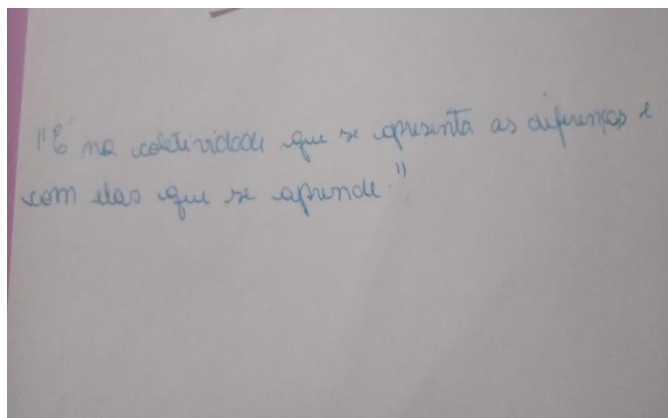 "É na coletividade que se apresenta as diferenças e
com elas que se aprende."